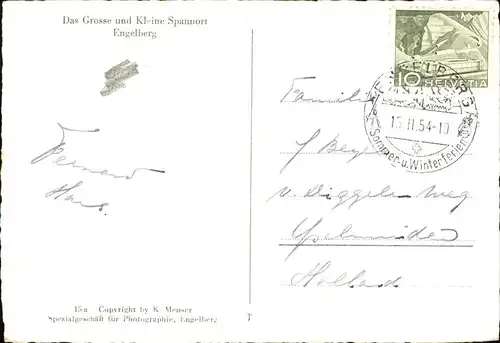 Das Grosse und Kleine Spannort
Engelberg
10 HELVETIA
ENGELBERG
15.II.54-10
Sommer u. Winterferien
Familie
J Beyer
v. Diggelen weg
IJsselmuiden
Holland
Fernand
Hans.
15a Copyright by K. Meuser
Spezialgeschäft für Photographie, Engelberg